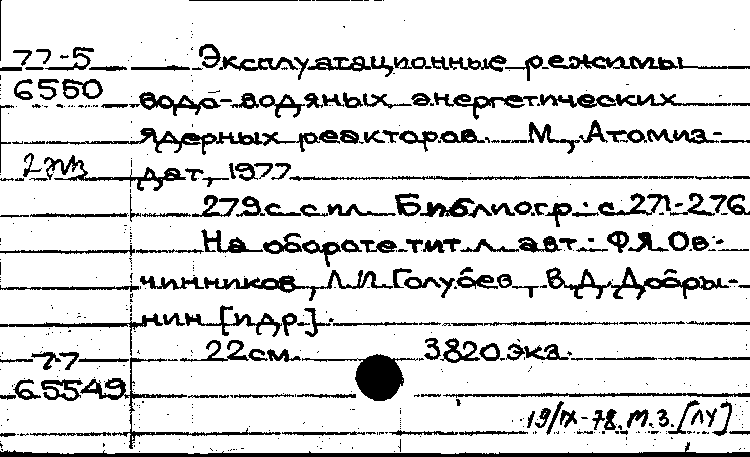 77-5 Эксплуатационные режимы
6550 водо-водяных энергетических
ядерных реакторов. М., Атомиз-
2 экз дат, 1977.
279 с. с ил. Библиогр.: с. 271-276
На обороте тит. л. авт.: Ф.Я. Ов-
чинников, Л.И. Голубев, В.Д. Добры-
нин [и др.].
77 22 см. 3820 экз.
65549
19/IX-78. М.З. [ЛУ]